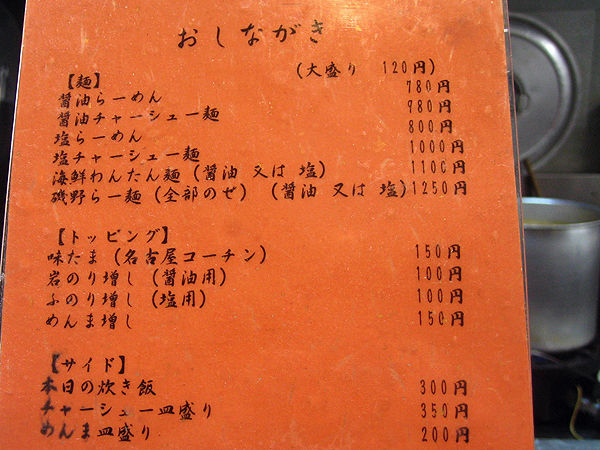 おしながき
(大盛り 120円)
【麺】
醤油らーめん 780円
醤油チャーシュー麺 980円
塩らーめん 800円
塩チャーシュー麺 1000円
海鮮わんたん麺(醤油 又は 塩) 1100円
磯野らー麺(全部のせ) (醤油 又は 塩) 1250円
【トッピング】
味たま(名古屋コーチン) 150円
岩のり増し(醤油用) 100円
ふのり増し(塩用) 100円
めんま増し 150円
【サイド】
本日の炊き飯 300円
チャーシュー皿盛り 350円
めんま皿盛り 200円